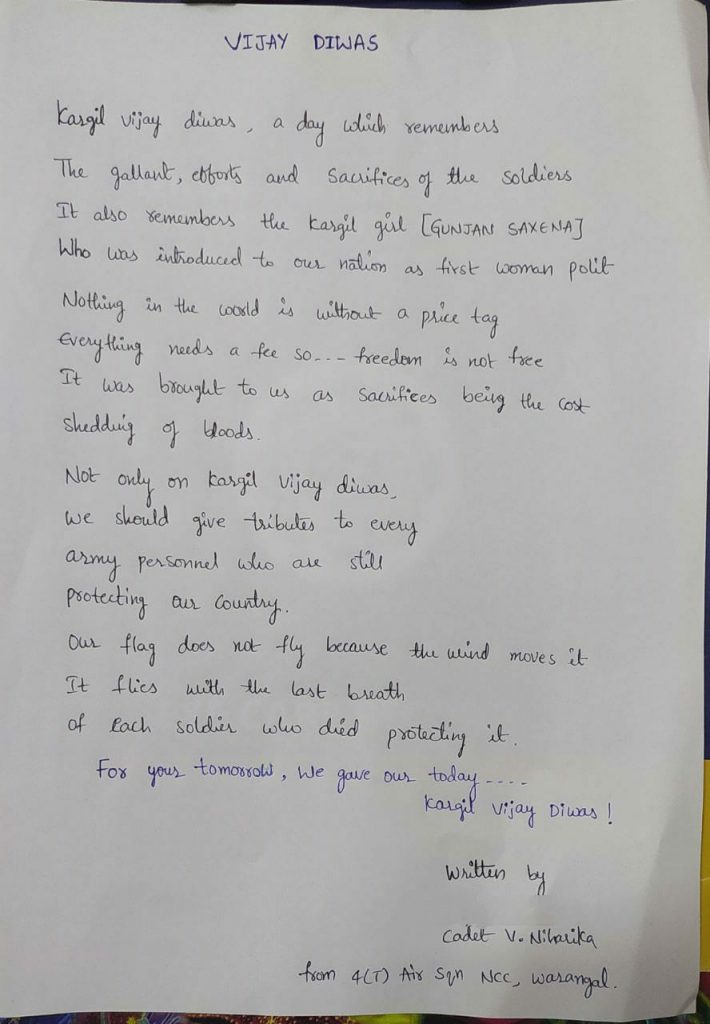 VIJAY DIWAS
Kargil vijay diwas, a day which remembers
The gallant, efforts and sacrifices of the soldiers
It also remembers the kargil girl [GUNJAN SAXENA]
Who was introduced to our nation as first woman polit
Nothing in the world is without a price tag
Everything needs a fee so--- freedom is not free
It was brought to us as sacrifices being the cost
shedding of bloods.
Not only on kargil vijay diwas,
we should give tributes to every
army personnel who are still
protecting our country.
Our flag does not fly because the wind moves it
It flies with the last breath
of each soldier who died protecting it.
For your tomorrow, we gave our today----
Kargil vijay Diwas!
Written by
Cadet V. Niharika
from 4(T) Air Sqn NCC, Warangal.